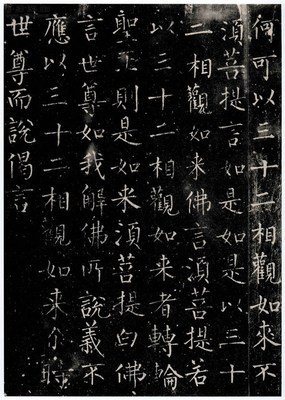 何可以三十二相觀如來不
須菩提言如是如是以三十
二相觀如来佛言須菩提若
以三十二相觀如来者轉輪
聖王則是如来須菩提白佛
言世尊如我解佛所說義不
應以三十二相觀如来尒時
世尊而說偈言